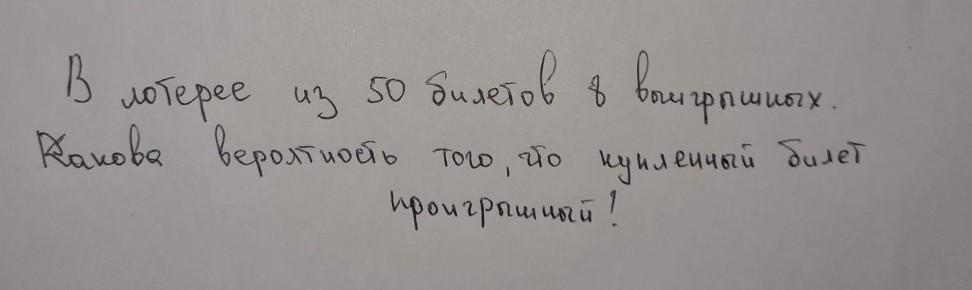 В лотерее из 50 билетов 8 выигрышных.
Какова вероятность того, что купленный билет
проигрышный!